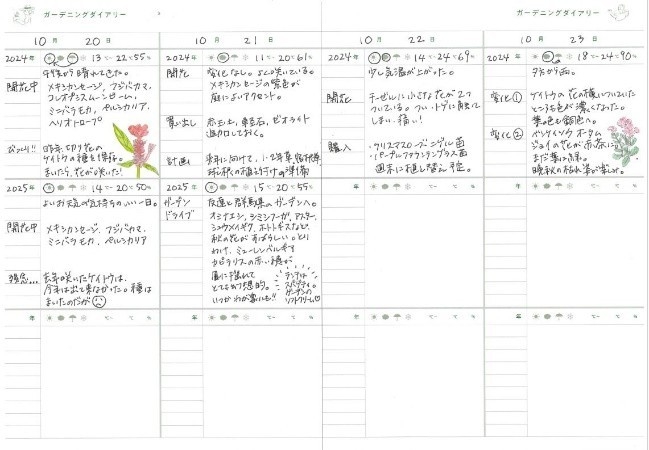 ガーデニングダイアリー
ガーデニングダイアリー
10月 20日
10月 21日
10月 22日
10月 23日
2024年 13℃-22℃ 55%
午後から晴れてきた。
開花中 メキシカンセージ、フジバカマ、
コレオプシスムーンビーム、
ミニバラモカ、ペルシカリア、
ヘリオトロープ
びっくり!! 昨年、切り花の
ケイトウの種を保存。
まいたら、花が咲いた!
2024年 11℃-20℃ 61%
開花 変化なし。よく咲いている。
メキシカンセージの紫色が
庭によいアクセント。
買い出し 赤玉土、軽石、ゼオライト
追加しておく。
計画 来年に向けて、1・2年草、宿根草
球根の植え付けの準備
2024年 14℃-24℃ 69%
少し気温が上がった。
開花 チーゼルに小さな花が2つ
ついている。つい、トゲに触って
しまい、痛い!
購入 ・クリスマスローズ ニゲル 苗
・パープルファウンテングラス 苗
週末に植え替え予定。
2024年 18℃-24℃ 90%
夕方から雨。
変化① ケイトウの花の横についていた
ところ色が濃くなった。
葉の色も銅色へ。
変化② ベンケイソウ オータム
ジョイの花が赤茶に。
まだ葉は緑。
晩秋の枯れ姿が楽しみ。
2025年 14℃-20℃ 50%
よいお天気で気持ちのいい一日。
開花中 メキシカンセージ、フジバカマ、
ミニバラモカ、ペルシカリア
残念... 去年咲いたケイトウは、
今年は出て来なかった。種は
まいたのだが
2025年 15℃-20℃ 55%
ガーデン
ドライブ
友達と群馬県のガーデンへ。
オミナエシ、シミシフーガ、アスター、
シュウメイギク、ホトトギスなど、
秋の花がすばらしい。とり
わけ、ミューレンベルギア
カピラリスの赤い穂が
風に揺れて
とても幻想的。
いつかわが家にも!!
ランチは
スパゲティ。
ガーデンの
ソフトクリーム♡
年 ℃-℃ %
年 ℃-℃ %
年 ℃-℃ %
年 ℃-℃ %
年 ℃-℃ %
年 ℃-℃ %